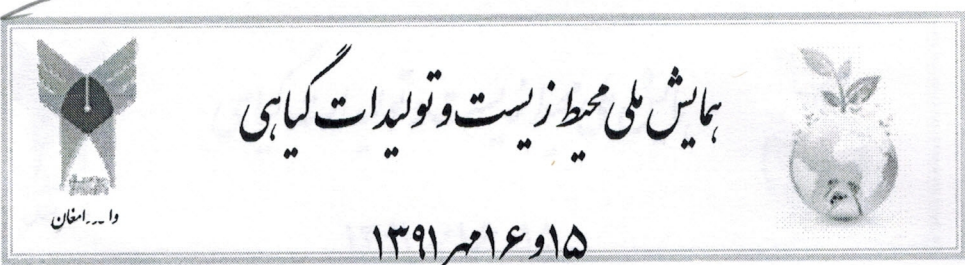 همایش ملی محیط زیست و تولیدات گیاهی
۱۵ و ۱۶ مهر ۱۳۹۱